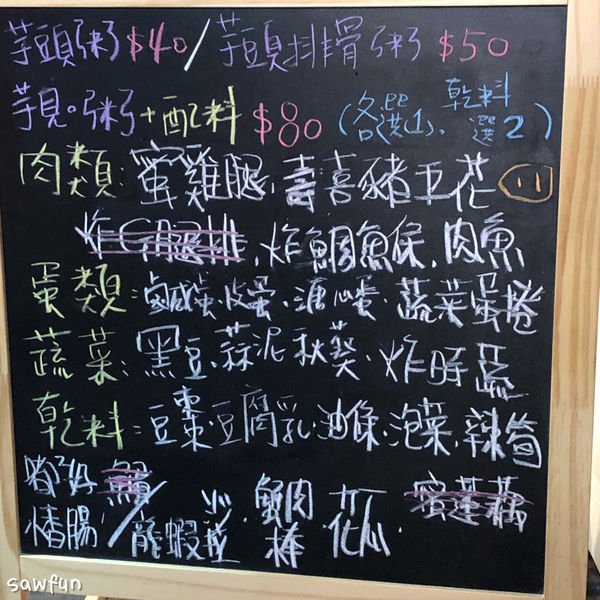 芋頭粥$40/芋頭排骨粥$50
芋見。粥+配料$80(各區選1、乾料選2)
肉類:蜜雞腿、壽喜豬五花
炸G腿排、炸鯛魚保、肉魚
蛋類:鹹蛋、皮蛋、溏心蛋、蔬菜蛋捲
蔬菜:黑豆、蒜泥秋葵、炸時蔬
乾料:豆棗、豆腐乳、油條、泡菜、辣筍
鱈
香腸/龍蝦沙拉、蟹肉棒、花心、蜜蓮藕
sawfun